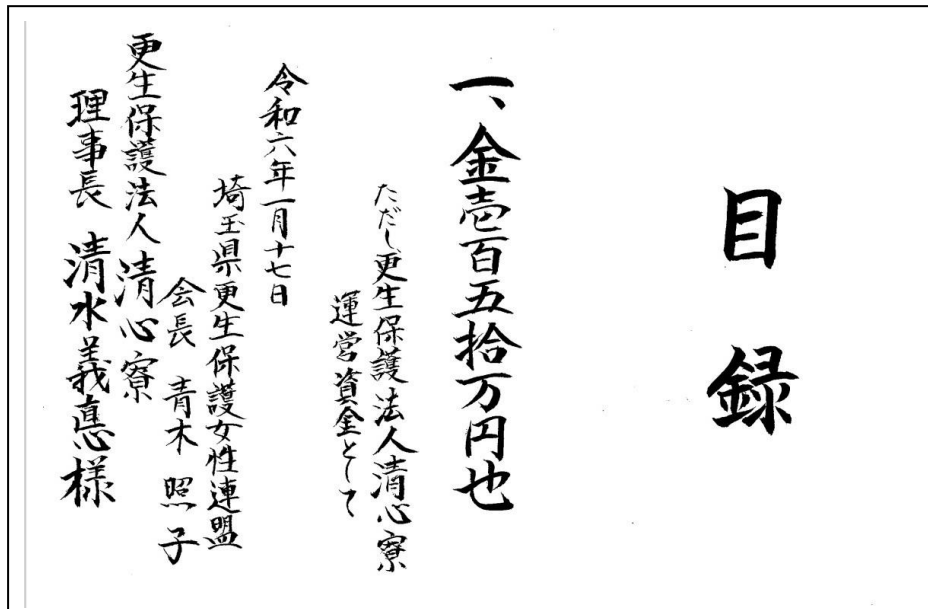 目録
一、金壱百五拾万円也
ただし更生保護法人清心寮
運営資金として
令和六年一月十七日
埼玉県更生保護女性連盟
会長 青木照子
更生保護法人清心寮
理事長 清水義悳様